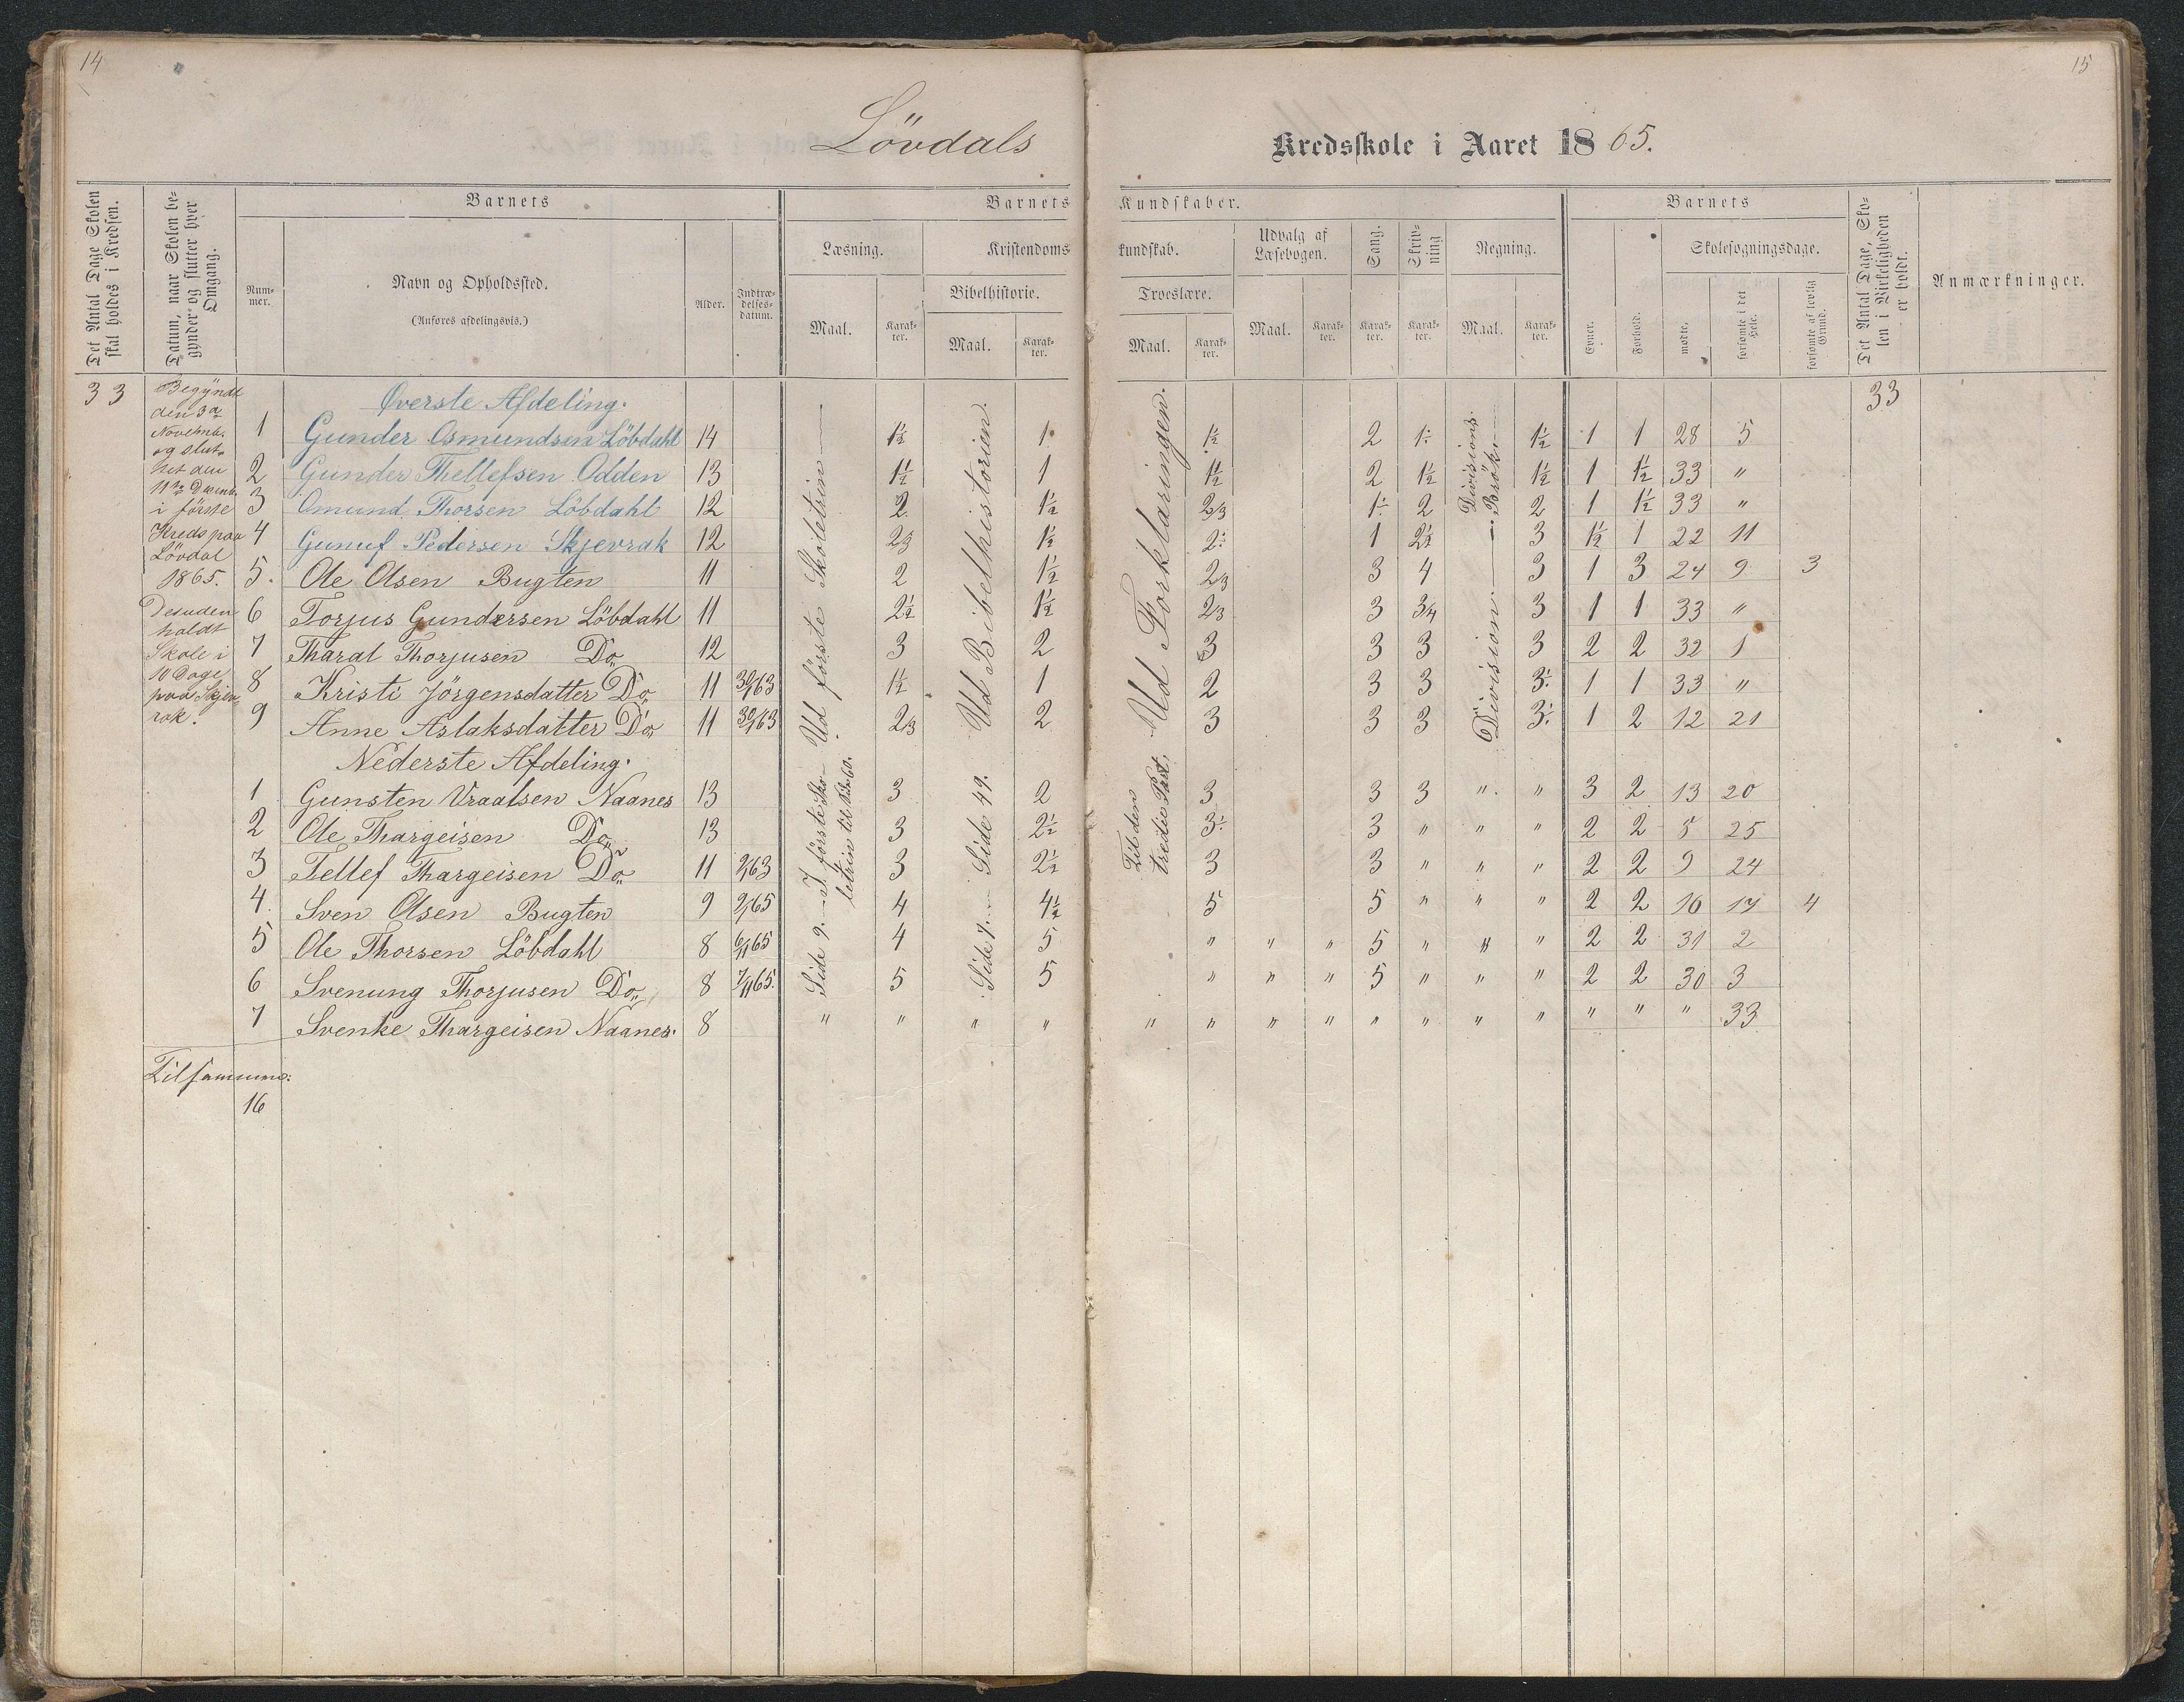 14
15
Lövdals Kredsskole i Aaret 1865.
Det Antal Dage Skolen skal holdes i Kredsen.
Datum, naar Skolen begynder og slutter hver Omgang.
Barnets
Nummer.
Navn og Opholdssted.
(Anføres afdelingsvis.)
Alder.
Indtrædelsesdatum.
Barnets Kundskaber.
Læsning.
Maal.
Karakter.
Kristendomskundskab.
Bibelhistorie.
Maal.
Karakter.
Troeslære.
Maal.
Karakter.
Udvalg af Læsebogen.
Maal.
Karakter.
Sang.
Karakter.
Skrivning
Karakter.
Regning.
Maal.
Karakter.
Barnets
Evner.
Forhold.
Skolesøgningsdage.
mødte.
forsømte i det Hele.
forsømte af lovlig Grund.
Det Antal Dage, Skolen i Virkeligheden er holdt.
Anmærkninger.
33
Begyndt
den 3de
Novemb.
og slut-
tet den
11te Decemb.
i förste
Kreds paa
Lövdal
1865.
Desuden
holdt
Skole i
10 Dage
paa Skjev-
rak.
Øverste Afdeling.
33
1 Gunder Osmundsen Löbdahl 14 1½ 1. 1½ 2 1÷ 1½ 1 1 28 5
2 Gunder Thellefsen Odden 13 1½ 1 1½ 2 1½ 1½ 1 1½ 33 "
3 Omund Thorsen Löbdahl 12 2. 1½ 2/3 1÷ 2 2 1 1½ 33 "
4 Gunuf Pedersen Skjevrak 12 2/3 1½ 2÷ 1 2½ 3 1½ 1 22 11
5. Ole Olsen Bugten 11 2 1½ 2/3 3 4 3 1 3 24 9 3
6 Torjus Gundersen Löbdahl 11 2½ 1½ 2/3 3 3/4 3 1 1 33 "
7 Tharal Thorjusen Do 12 3 2 3 3 3 3 2 2 32 1
8 Kristi Jörgensdatter Do 11 1½ 1 2 3 3 3÷ 1 1 33 "
9 Anne Aslaksdatter Do 11 2/3 2 3 3 3 3÷ 1 2 12 21
Ud förste Skoletrin
Ud Bibelhistorien.
Ud Forklaringen.
Divisions
Brök.
Division.
Nederste Afdeling.
1 Gunsten Vraalsen Naanes 13 3 2 3 3 3 " " 3 2 13 20
2 Ole Thargeisen Do 13 3 2½ 3÷ 3 " " " 2 2 8 25
3 Tellef Thargeisen Do 11 3 2½ 3 3 " " " 2 2 9 24
4. Sven Olsen Bugten 9 4 4½ 5 5 " " " 2 2 16 17 4
5 Ole Thorsen Löbdahl 8 6/11 65 4 5 " " " 5 " " " 2 2 31 2
6 Svenung Thorjusen Do 8 7/11 65. 5 5 " " " 5 " " " 2 2 30 3
7 Svenke Thargeisen Naanes. 8 " " " " " " " " " " " " " " " 33
I förste Sko-
letrin til Side 60.
Side 9.
Side 49.
Side 7.
Til den
tredie Part.
Tilsamme:
16